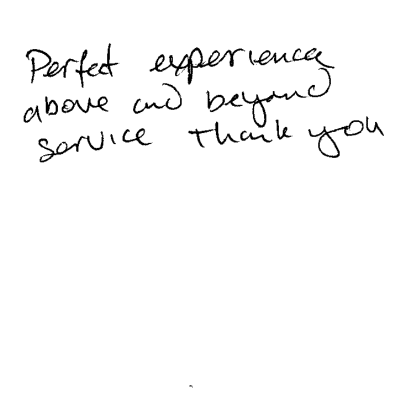 Perfect experience
above and beyond
service thank you